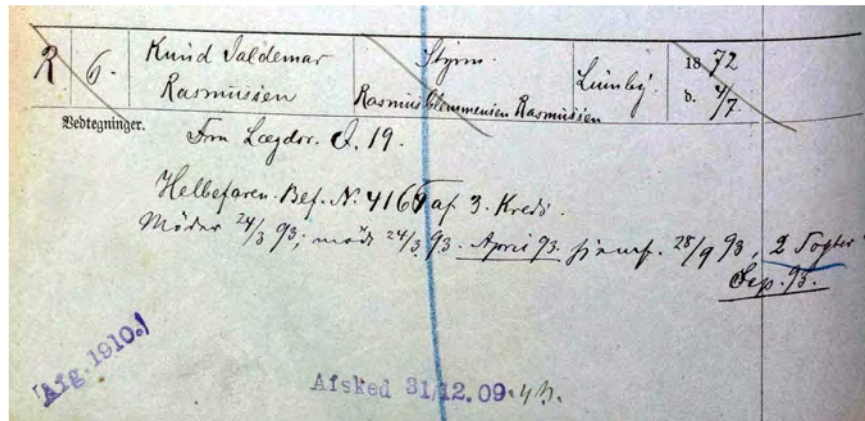 R 6. Knud Valdemar Styrm. Lumby. 1872
Rasmussen Rasmus Clemmensen Rasmussen d. 4/7
Bedtegninger.
Fra Lægdsr. Q. 19.
Helbefaren. Bef. N. 4169 af 3. Kreds.
Möder 24/3 93; mödt 24/3 93. April 93. hjemf. 28/9 93, 2 Togter
Sep. 93.
[Afg. 1910.]
Afsked 31/12.09.